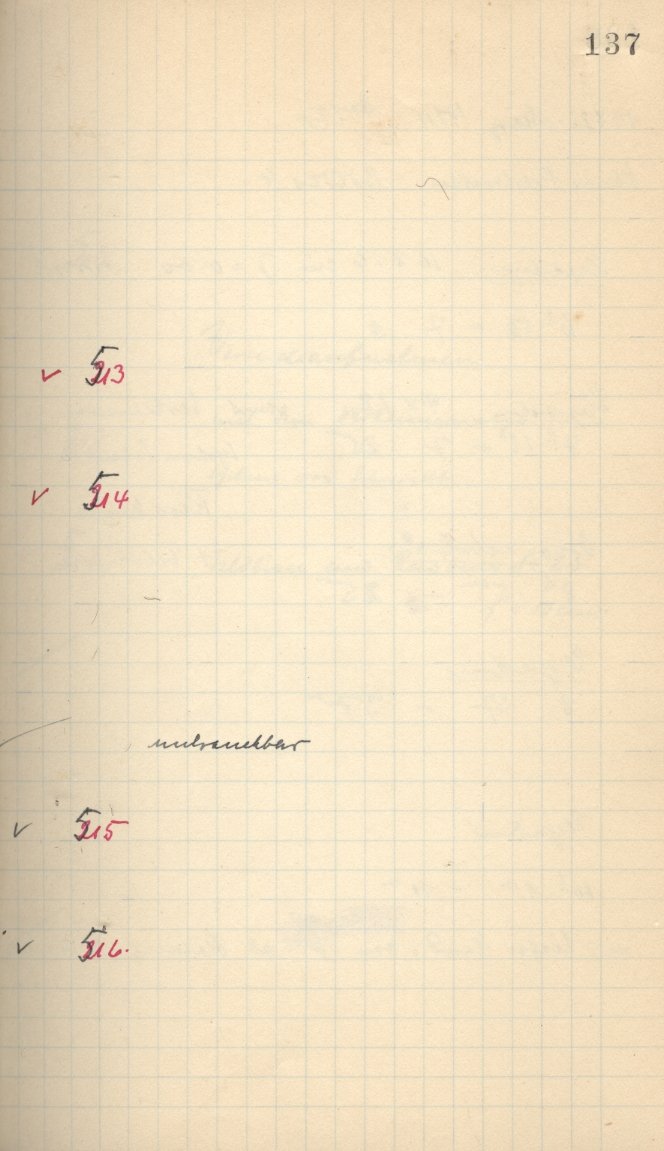 137
✓ 513
✓ 514
unbrauchbar
✓ 515
✓ 516.